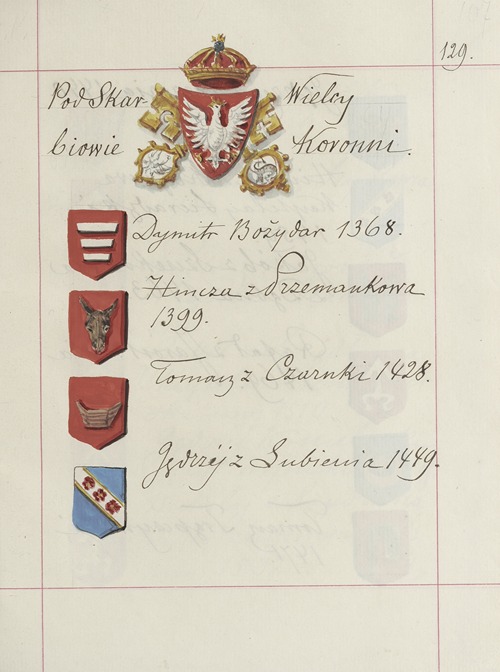 129.
Pod Skar Wielcy
biowie Koronni.
Dymitr Bożydar 1368.
Hincza z Przemankowa
1399.
Tomasz z Czarnki 1428.
Jędrzéj z Lubienia 1449.